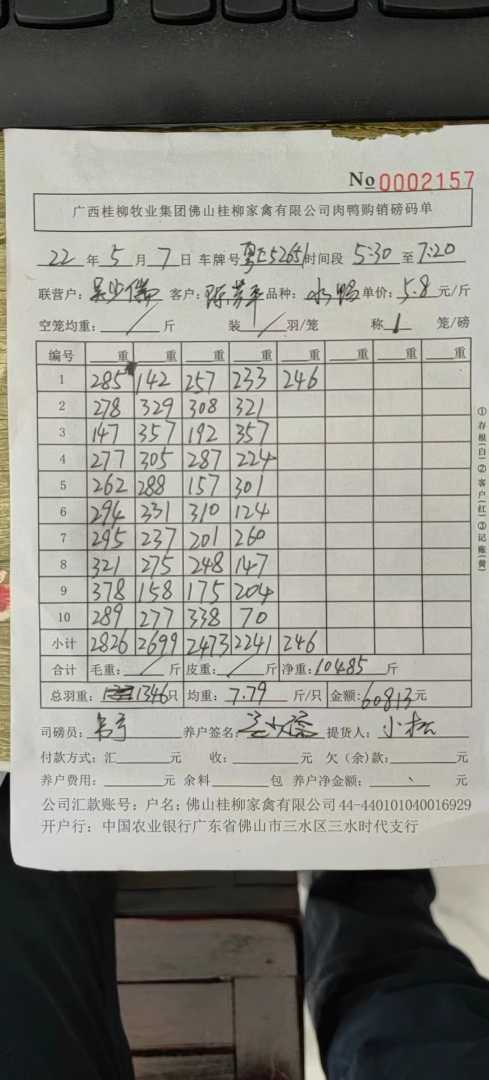 No 0002157
广西桂柳牧业集团佛山桂柳家禽有限公司肉鸭购销磅码单
22 年 5 月 7 日 车牌号 粤E52651 时间段 5:30 至 7:20
联营户: 客户: 品种: 水鸭 单价: 5.8 元/斤
空笼均重: / 斤 装 / 羽/笼 称 1 笼/磅
编号 重 重 重 重 重 重 重 重
1 285 142 257 233 246
2 278 329 308 321
3 147 357 192 357
4 277 305 287 224
5 262 288 157 301
6 294 331 310 124
7 295 237 201 260
8 321 275 248 147
9 378 158 175 204
10 289 277 338 70
小计 2826 2699 2473 2241 246
合计 毛重: / 斤 皮重: / 斤 净重: 10485 斤
总羽重: 1346 只 均重: 7.79 斤/只 金额: 60813 元
司磅员: 养户签名: 提货人: 小松
付款方式: 汇 元 收: 元 欠(余)款: 元
养户费用: 元 余料 包 养户净金额: 元
公司汇款账号: 户名: 佛山桂柳家禽有限公司 44-440101040016929
开户行: 中国农业银行广东省佛山市三水区三水时代支行
①存根(白)②客户(红)③记账(黄)